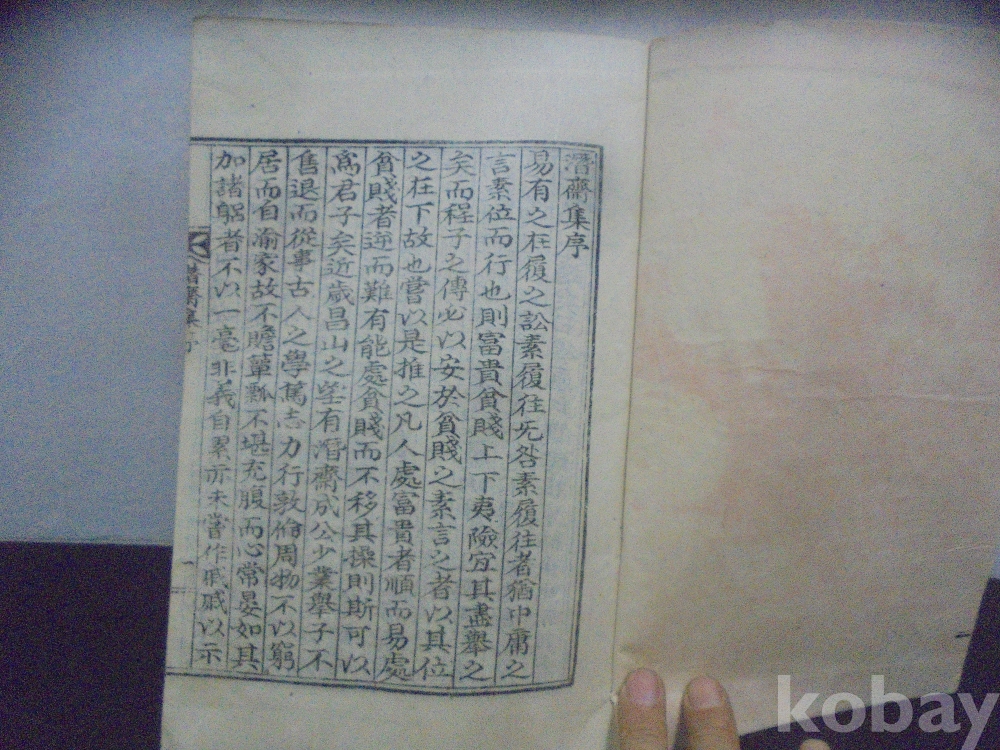 潛齋集序
易有之在履之訟素履往旡咎素履往者猶中庸之
言素位而行也則富貴貧賤上下夷險宜其盡舉之
矣而程子之傳必以安於貧賤之素言之者以其位
之在下故也嘗以是推之凡人處富貴者順而易處
貧賤者逆而難有能處貧賤而不移其操則斯可以
爲君子矣近歲昌山之望有潛齋成公少業擧子不
售退而從事古人之學篤志力行敦倫周物不以窮
居而自渝家故不贍簞瓢不堪充腹而心常晏如其
加諸躬者不以一毫非義自累亦未嘗作戚戚以示
潛齋集序
一
kobay